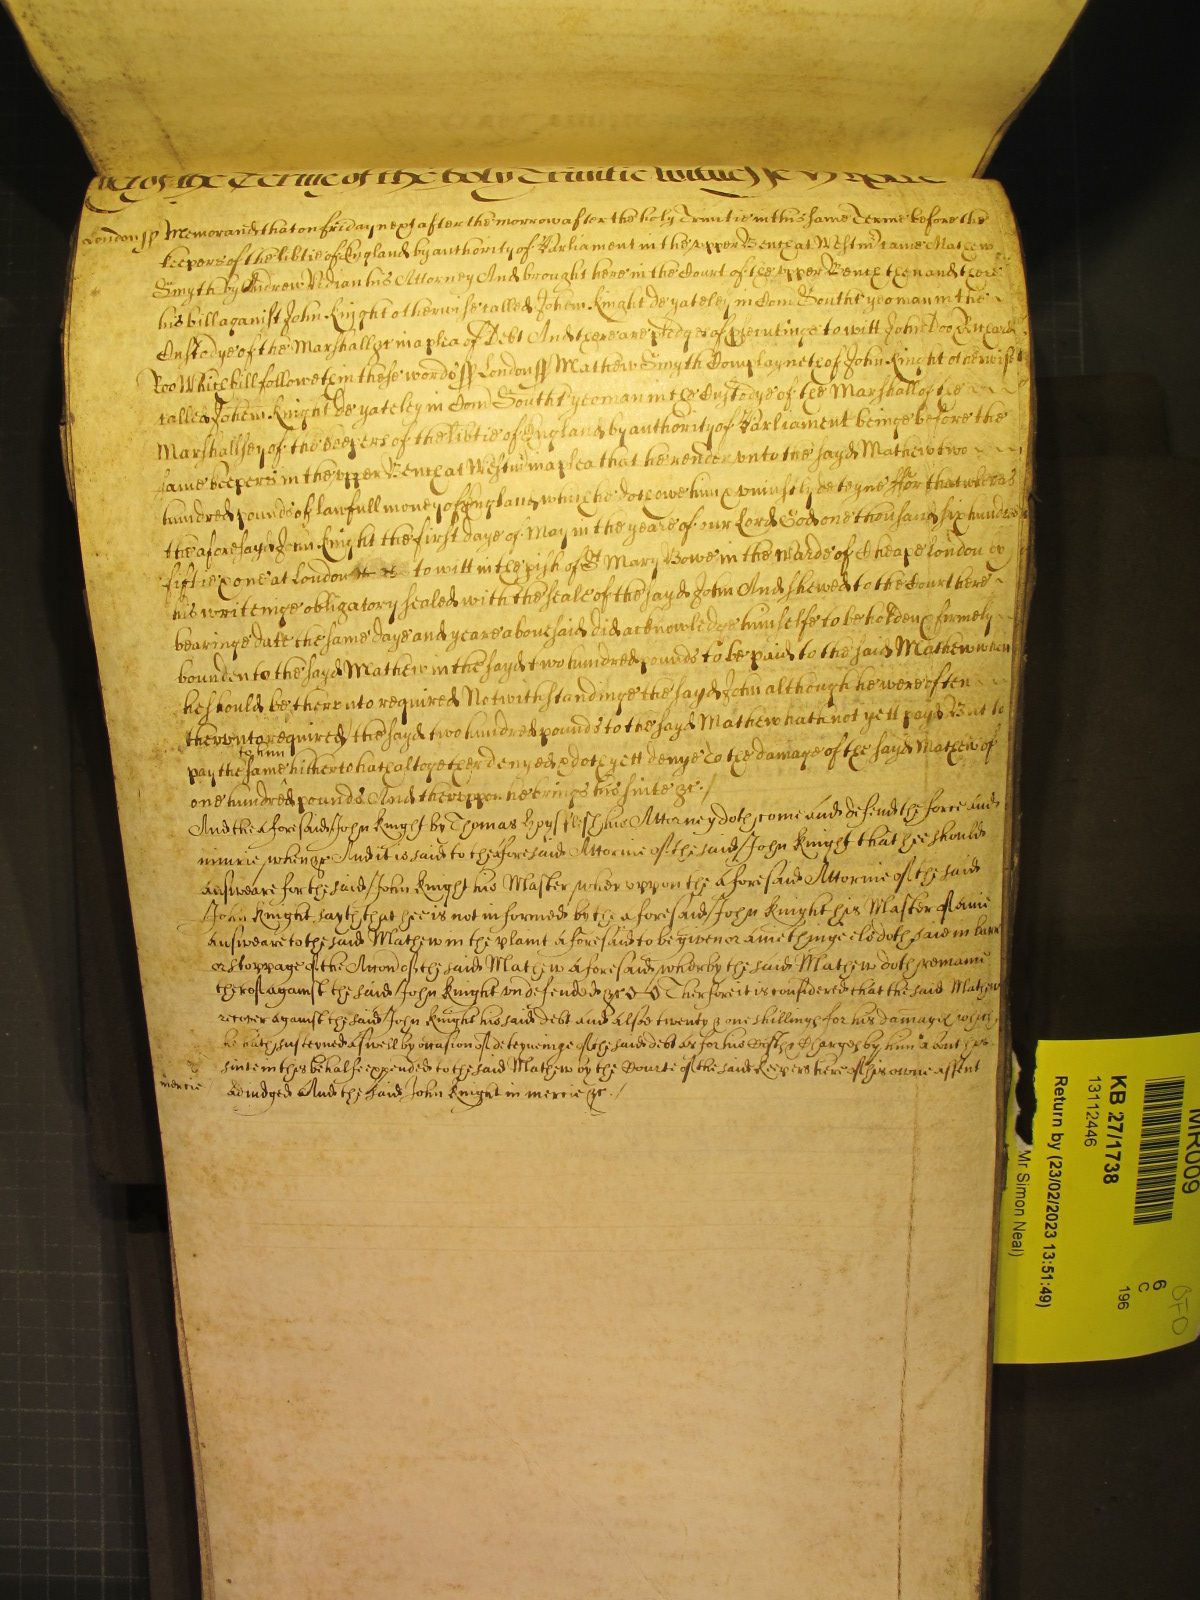 of the Terme of the holy Trinitie witnesse
London ss Memorand that on friday next after the morrow after the holy Trinitie in this same Terme before the
keepers of the libtie of England by authority of Parliament in the vpper Bench at Westm came Mathew
Smyth by Andrew Vidian his Attorney And brought here in the Court of the vpper Bench then and there
his bill against John Knight otherwise called Johem Knight de yateley in Com Southt yeoman in the
Custodye of the Marshall &c in a plea of Debt And there are pledges of psecutinge to witt John Doo Richard
Roo Which bill followeth in these words ss London ss Mathew Smyth Complayneth of John Knight otherwise
called Johem Knight de yateley in Com Southt yeoman in the Custodye of the Marshall of the
Marshallsey of the keepers of the libtie of England by authority of Parliament beinge before the
same keepers in the vpper Bench at Westm in a plea that he render vnto the sayd Mathew two
hundred pounds of lawfull money of England which he doth owe him & vniustly deteyne ffor that whereas
the aforesayd John Knight the first daye of May in the yeare of our Lord God one thousand six hundred
fiftie & one at London to witt in the pish of S Mary Bowe in the Warde of Cheape London by
his writeinge obligatory sealed with the seale of the sayd John And shewed to the Court here
bearinge date the same daye and yeare aboue said did acknowledge himselfe to be holden & firmely
bounden to the sayd Mathew in the sayd two hundred pounds to be paid to the said Mathew when
he should be there vnto required Notwithstandinge the sayd John although he were often
therevnto required the sayd two hundred pounds to the sayd Mathew hath not yett payd But to
to him
pay the same hitherto hath altogether denyed & doth yett denye To the damage of the sayd Mathew of
one hundred pounds And therevppon he brings his suite &c
And the aforesaid John Knight by Thomas his Attorney doth come and defend the force and
iniurie when &c And it is said to the aforesaid Attornie of the said John Knight that hee should
answeare for the said John Knight his Master wher vppon the aforesaid Attornie of the said
John Knight sayth that hee is not informed by the aforesaid John Knight his Master of anie
answeare to the said Mathew in the plaint aforesaid to be given or anie thinge els doth saie in barr
or stoppage of the Accon of the said Mathew aforesaid wherby the said Mathew doth remaine
therof against the said John Knight vndefended &c Therfore it is considered that the said Mathew
recover against the said John Knight his said debt and alsoe twenty & one shillings for his damages which
he hath susteyned aswell by occasion of deteyneinge of the said debt as for his Costs & Charges by him about his
suite in this behalfe expended to the said Mathew by the Courte of the said keepers here of his owne assent
mercie
adiudged And the said John Knight in mercie &c
MR009
KB 27/1738
13112446
Return by (23/02/2023 13:51:49)
Mr Simon Neal)
6
C
196